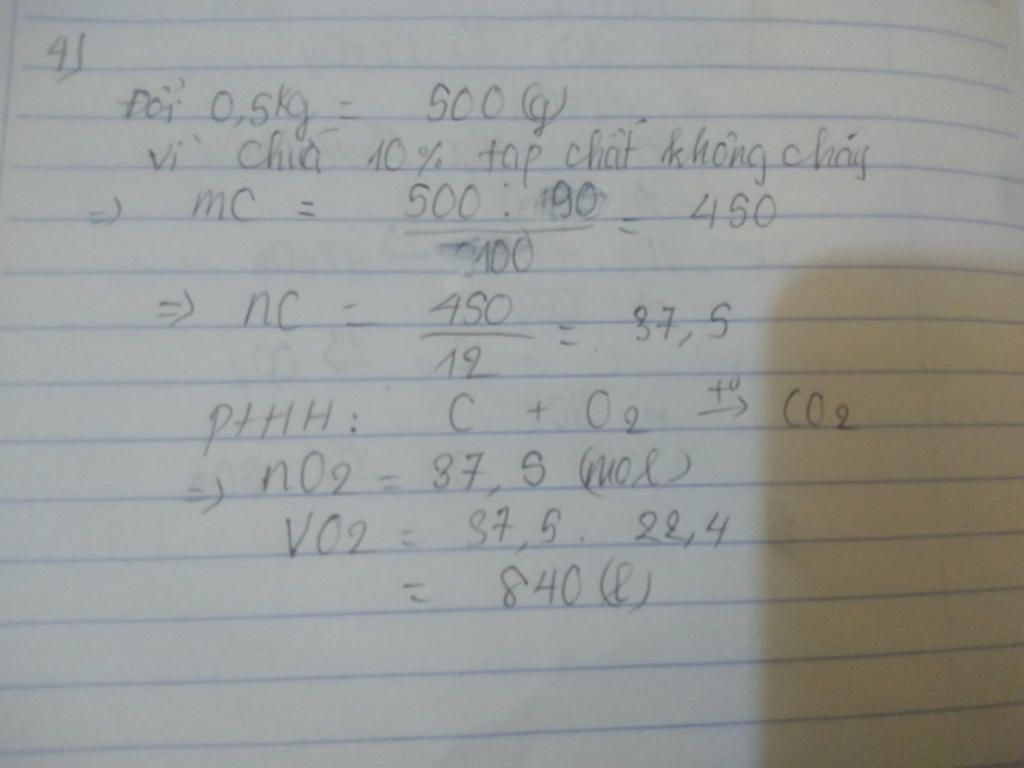 4)
Đổi 0,5kg = 500 (g)
Vì chứa 10% tạp chất không cháy
=> mC = 500 . 90 / 100 = 450
=> nC = 450 / 12 = 37,5
PTHH: C + O2 t0→ CO2
=> nO2 = 37,5 (mol)
VO2 = 37,5 . 22,4
= 840 (l)